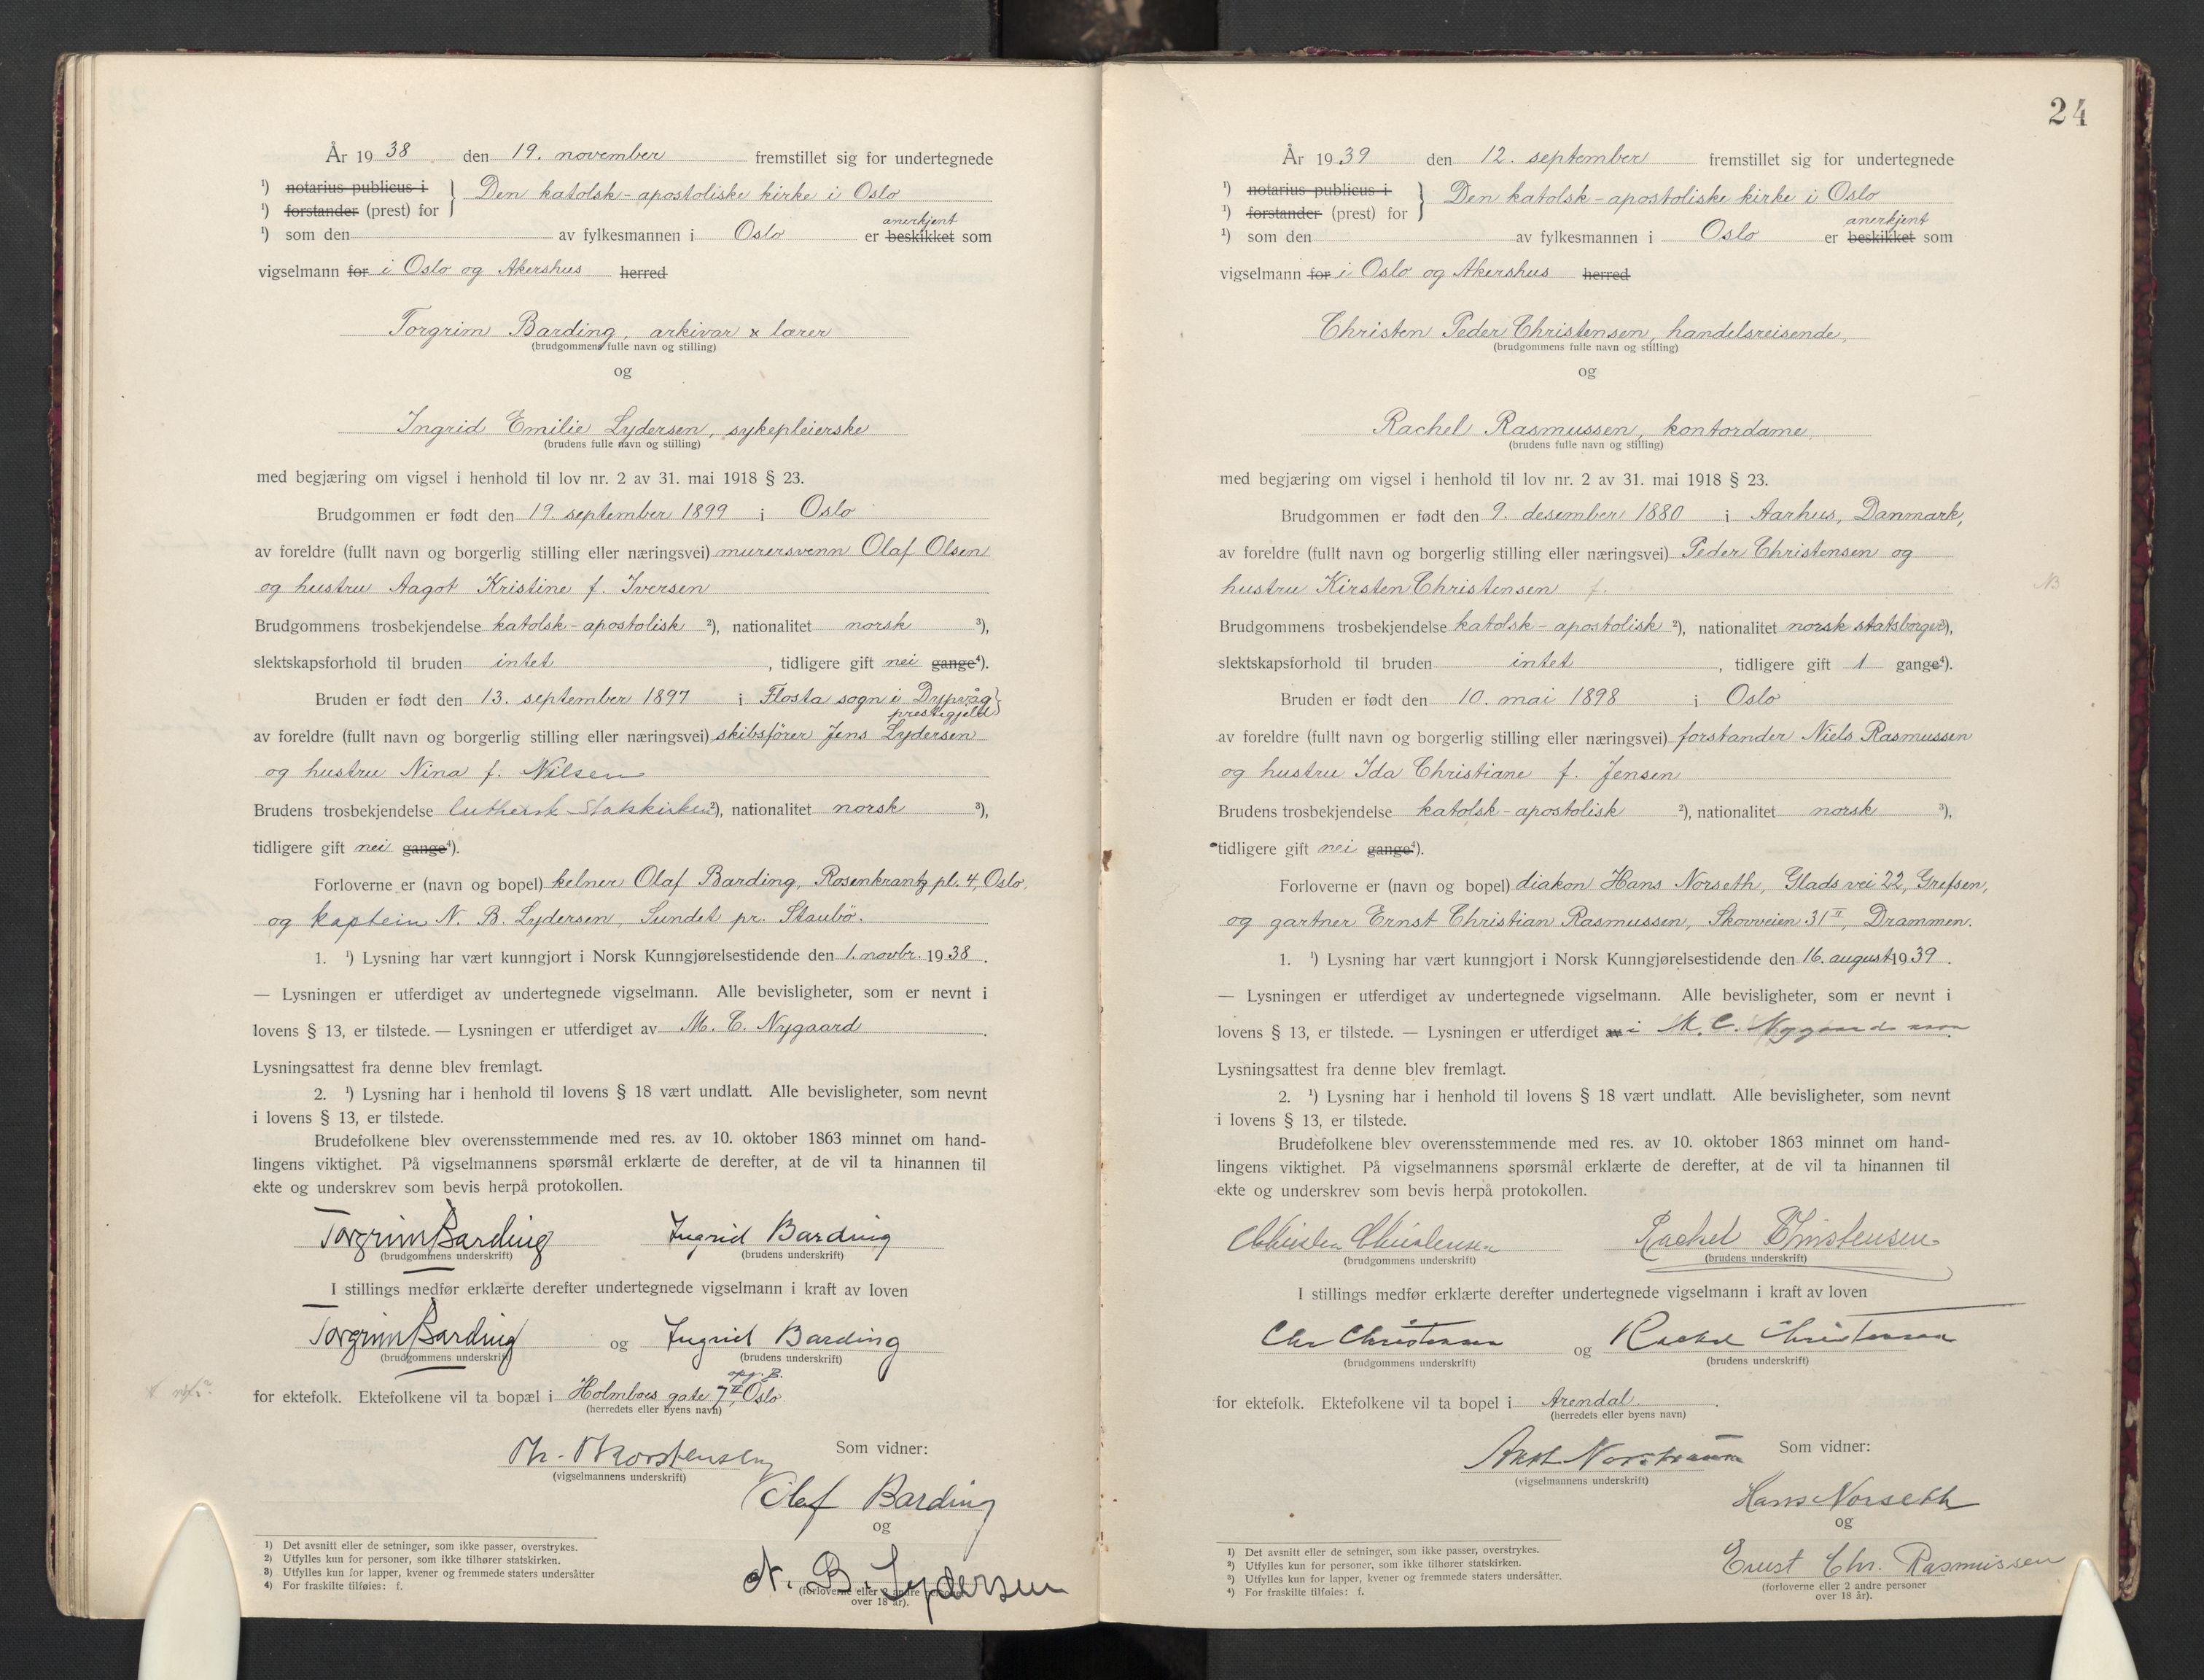 År 19 38 den 19. november fremstillet sig for undertegnede
¹) notarius publicus i } Den katolsk-apostoliske kirke i Oslo
¹) forstander (prest) for
anerkjent
¹) som den av fylkesmannen i Oslo er beskikket som
vigselmann for i Oslo og Akershus herred
Torgrim Barding, arkivar x lærer
(brudgommens fulle navn og stilling)
og
Ingrid Emilie Lydersen, sykepleierske
(brudens fulle navn og stilling)
med begjæring om vigsel i henhold til lov nr. 2 av 31. mai 1918 § 23.
Brudgommen er født den 19. september 1899 i Oslo
av foreldre (fullt navn og borgerlig stilling eller næringsvei) murersvenn Olaf Olsen
og hustru Aagot Kristine f. Iversen
Brudgommens trosbekjendelse katolsk-apostolisk ²), nationalitet norsk ³),
slektskapsforhold til bruden intet , tidligere gift nei gange⁴).
Bruden er født den 13. september 1897 i Flosta sogn i Dypvåg
prestegjeld
av foreldre (fullt navn og borgerlig stilling eller næringsvei) skibsfører Jens Lydersen
og hustru Nina f. Nilsen
Brudens trosbekjendelse luthersk Statskirken ²), nationalitet norsk ³),
tidligere gift nei gange⁴).
Forloverne er (navn og bopel) kelner Olaf Barding, Rosenkrantz pl. 4, Oslo,
og kaptein N. B. Lydersen, Sundet pr. Staubö.
1. ¹) Lysning har vært kunngjort i Norsk Kunngjørelsestidende den 1. novbr. 19 38 .
— Lysningen er utferdiget av undertegnede vigselmann. Alle bevisligheter, som er nevnt i
lovens § 13, er tilstede. — Lysningen er utferdiget av M. C. Nygaard .
Lysningsattest fra denne blev fremlagt.
2. ¹) Lysning har i henhold til lovens § 18 vært undlatt. Alle bevisligheter, som nevnt
i lovens § 13, er tilstede.
Brudefolkene blev overensstemmende med res. av 10. oktober 1863 minnet om hand-
lingens viktighet. På vigselmannens spørsmål erklærte de derefter, at de vil ta hinannen til
ekte og underskrev som bevis herpå protokollen.
Torgrim Barding Ingrid Barding
(brudgommens underskrift) (brudens underskrift)
I stillings medfør erklærte derefter undertegnede vigselmann i kraft av loven
Torgrim Barding og Ingrid Barding
(brudgommens underskrift) (brudens underskrift)
opg. B.
for ektefolk. Ektefolkene vil ta bopæl i Holmboes gate 7 II, Oslo.
(herredets eller byens navn)
Th. Thorstensen Som vidner:
(vigselmannens underskrift)
Olaf Barding
og
N. B. Lydersen
(forloverne eller 2 andre personer
over 18 år).
1) Det avsnitt eller de setninger, som ikke passer, overstrykes.
2) Utfylles kun for personer, som ikke tilhører statskirken.
3) Utfylles kun for lapper, kvener og fremmede staters undersåtter
4) For fraskilte tilføies: f.
24
År 19 39 den 12. september fremstillet sig for undertegnede
¹) notarius publicus i } Den katolsk-apostoliske kirke i Oslo
¹) forstander (prest) for
anerkjent
¹) som den av fylkesmannen i Oslo er beskikket som
vigselmann for i Oslo og Akershus herred
Christen Peder Christensen, handelsreisende,
(brudgommens fulle navn og stilling)
og
Rachel Rasmussen, kontordame
(brudens fulle navn og stilling)
med begjæring om vigsel i henhold til lov nr. 2 av 31. mai 1918 § 23.
Brudgommen er født den 9. desember 1880 i Aarhus, Danmark,
av foreldre (fullt navn og borgerlig stilling eller næringsvei) Peder Christensen og
hustru Kirsten Christensen f. NB
Brudgommens trosbekjendelse katolsk-apostolisk ²), nationalitet norsk statsborger ³),
slektskapsforhold til bruden intet , tidligere gift 1 gange⁴).
Bruden er født den 10. mai 1898 i Oslo
av foreldre (fullt navn og borgerlig stilling eller næringsvei) forstander Niels Rasmussen
og hustru Ida Christiane f. Jensen
Brudens trosbekjendelse katolsk-apostolisk ²), nationalitet norsk ³),
tidligere gift nei gange⁴).
Forloverne er (navn og bopel) diakon Hans Norseth, Glads vei 22, Grefsen,
og gartner Ernst Christian Rasmussen, Skovveien 31 II, Drammen.
1. ¹) Lysning har vært kunngjort i Norsk Kunngjørelsestidende den 16. august 19 39 .
— Lysningen er utferdiget av undertegnede vigselmann. Alle bevisligheter, som er nevnt i
lovens § 13, er tilstede. — Lysningen er utferdiget av i M. C. Nygaards
Lysningsattest fra denne blev fremlagt.
2. ¹) Lysning har i henhold til lovens § 18 vært undlatt. Alle bevisligheter, som nevnt
i lovens § 13, er tilstede.
Brudefolkene blev overensstemmende med res. av 10. oktober 1863 minnet om hand-
lingens viktighet. På vigselmannens spørsmål erklærte de derefter, at de vil ta hinannen til
ekte og underskrev som bevis herpå protokollen.
Christen Christensen Rachel Christensen
(brudgommens underskrift) (brudens underskrift)
I stillings medfør erklærte derefter undertegnede vigselmann i kraft av loven
Chr Christensen og Rachel Christensen
(brudgommens underskrift) (brudens underskrift)
for ektefolk. Ektefolkene vil ta bopel i Arendal .
(herredets eller byens navn)
Som vidner:
(vigselmannens underskrift)
Hans Norseth
og
Ernst Chr. Rasmussen
(forloverne eller 2 andre personer
over 18 år).
1) Det avsnitt eller de setninger, som ikke passer, overstrykes.
2) Utfylles kun for personer, som ikke tilhører statskirken.
3) Utfylles kun for lapper, kvener og fremmede staters undersåtter.
4) For fraskilte tilføies: f.